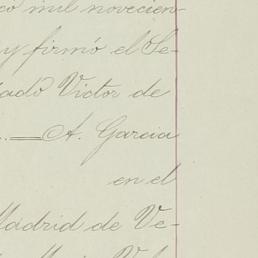 co mil novecien-
y firmó el Se-
tado Victor de
A. Garcia
en el
Madrid de Ve-